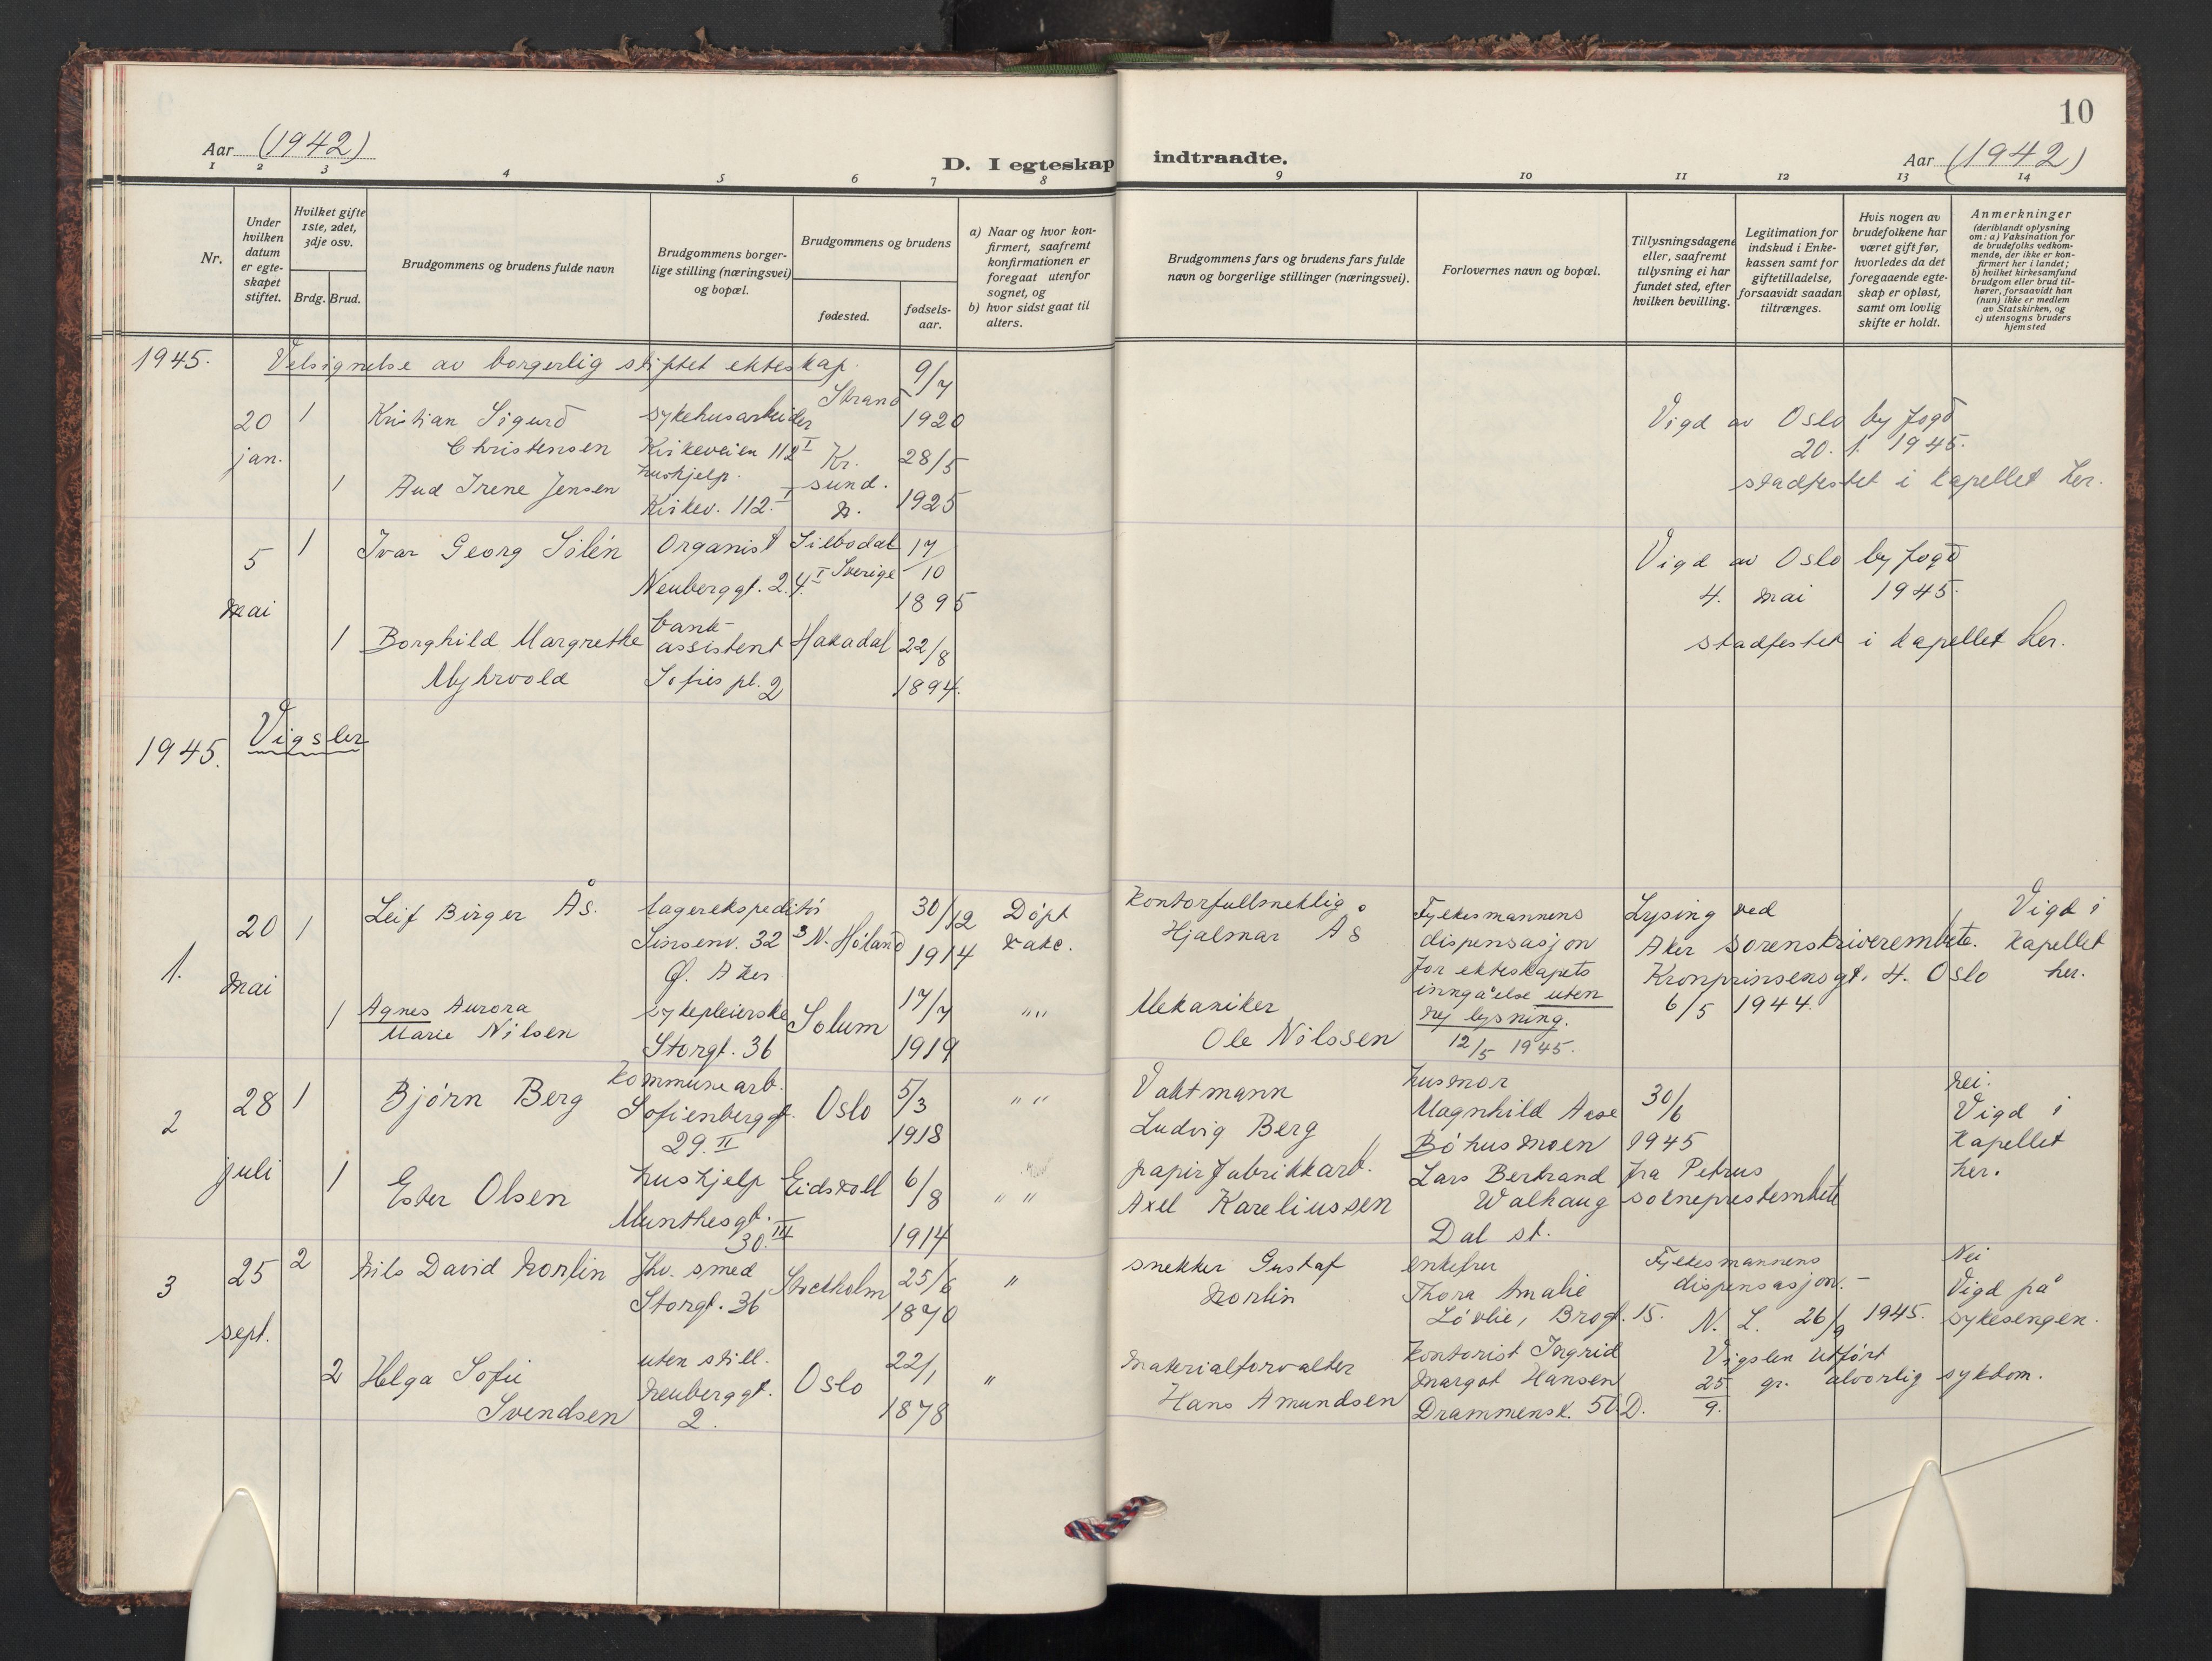 10
Aar (1942)
D. I egteskap indtraadte.
Aar (1942)
1 2 3 4 5 6 7 8 9 10 11 12 13 14
Nr.
Under
hvilken
datum
er egte-
skapet
stiftet.
Hvilket gifte
1ste, 2det,
3dje osv.
Brdg. Brud.
Brudgommens og brudens fulde navn
Brudgommens borger-
lige stilling (næringsvei)
og bopæl.
Brudgommens og brudens
fødested.
fødsels-
aar.
a) Naar og hvor kon-
firmert, saafremt
konfirmationen er
foregaat utenfor
sognet, og
b) hvor sidst gaat til
alters.
Brudgommens fars og brudens fars fulde
navn og borgerlige stillinger (næringsvei).
Forlovernes navn og bopæl.
Tillysningsdagene
eller, saafremt
tillysning ei har
fundet sted, efter
hvilken bevilling.
Legitimation for
indskud i Enke-
kassen samt for
giftetilladelse,
forsaavidt saadan
tiltrænges.
Hvis nogen av
brudefolkene har
været gift før,
hvorledes da det
foregaaende egte-
skap er opløst,
samt om lovlig
skifte er holdt.
Anmerkninger
(deriblandt oplysning
om: a) Vaksination for
de brudefolks vedkom-
mende, der ikke er kon-
firmert her i landet;
b) hvilket kirkesamfund
brudgom eller brud til-
hører, forsaavidt han
(hun) ikke er medlem
av Statskirken, og
c) utensogns bruders
hjemsted
1945. Velsignelse av borgerlig stiftet ekteskap.
20
jan.
1
Kristian Sigurd
Christensen
sykehusarbeider
Kirkeveien 112 I
Strand
9/7
1920
Vigd av Oslo byfogd
20. 1. 1945.
stadfestet i kapellet her.
1
Aud Irene Jensen
hushjelp.
Kirkev. 112. I
Kr.
sund.
N.
28/5
1925
5
mai
1
Ivar Georg Sölén
Organist
Neuberggt. 2.4. I
Silbodal
Sverige
17/
10
1895
Vigd av Oslo byfogd
4. mai 1945.
stadfestet i kapellet her.
1
Borghild Margrethe
Myhrvold
bank-
assistent
Sofies pl. 2
Hakadal
22/8
1894.
1945. Vigsler
1.
20
mai
1
Leif Birger Ås.
lagerekspeditør
Sinsenv. 32
Ø. Aker
N. Høland
30/12
1914
Døpt
vakc.
Kontorfullmektig
Hjalmar Ås
Fylkesmannens
dispensasjon
for ekteskapets
inngåelse uten
ny lysning.
12/5 1945.
Lysing ved
Aker sorenskriverembete.
Kronprinsensgt. 4. Oslo
6/5 1944.
Vigd i
kapellet
her.
1
Agnes Aurora
Marie Nilsen
sykepleierske
Storgt. 36
Solum
17/7
1919
" "
Mekaniker
Ole Nilssen
2
28
juli
1
Bjørn Berg
kommunearb.
Sofienberggt.
29. II
Oslo
5/3
1918
" "
Vaktmann
Ludvig Berg
husmor
Magnhild Aase
Bøhusmoen
30/6
1945
fra Petrus
sokneprestembete
nei.
Vigd i
kapellet
her.
1
Ester Olsen
hushjelp
Munthesgt.
30. III
Eidsvoll
6/8
1914
" "
papirfabrikkarb.
Axel Kareliussen
Lars Bertrand
Walhaug
Dal st.
3
25
sept.
2
Nils David Norlin
fhv. smed
Storgt. 36
Stockholm
25/6
1870
"
snekker Gustaf
Norlin
enkefru
Thora Amalie
Løvlie, Brogt. 15.
Fylkesmannens
dispensasjon. -
N. L. 26/9 1945.
Nei
Vigd på
sykesengen.
2
Helga Sofie
Svendsen
uten still.
Neuberggt.
2.
Oslo
22/1
1878
"
Materialforvalter
Hans Amundsen
kontorist Ingrid
Margot Hansen
Drammensv. 50. D.
Vigslen utført
25/9. gr. alvorlig sykdom.